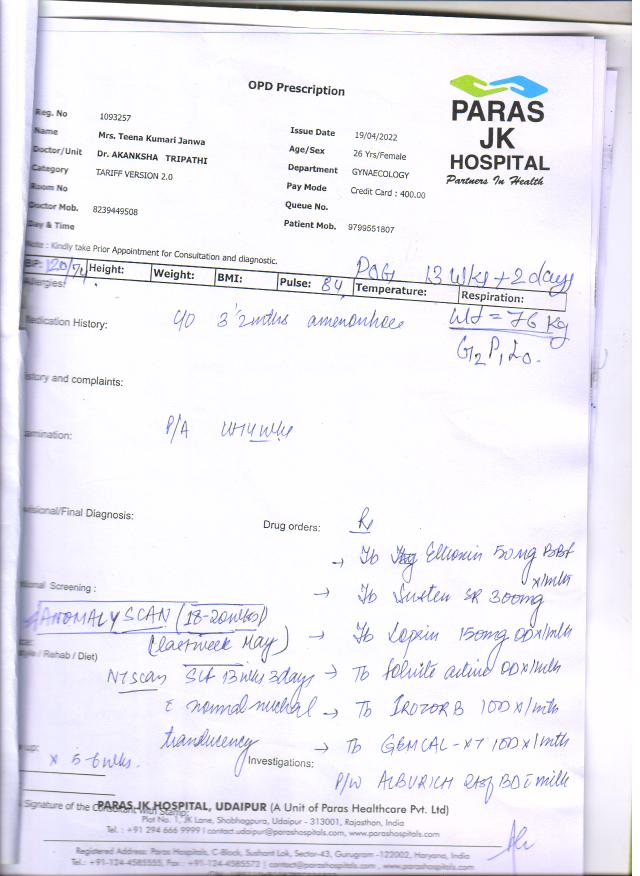 OPD Prescription
PARAS
JK
HOSPITAL
Partners In Health
Reg. No 1093257
Name Mrs. Teena Kumari Janwa
Doctor/Unit Dr. AKANKSHA TRIPATHI
Category TARIFF VERSION 2.0
Room No
Doctor Mob. 8239449508
Day & Time
Issue Date 19/04/2022
Age/Sex 26 Yrs/Female
Department GYNAECOLOGY
Pay Mode Credit Card : 400.00
Queue No.
Patient Mob. 9799551807
Note : Kindly take Prior Appointment for Consultation and diagnostic.
POG 13 wks + 2 days
BP: 120/71 Height: Weight: BMI: Pulse: 84 Temperature: Respiration:
Allergies:
Wt = 76 kg
Medication History: c/o 3 1/2 mths amenorrhoea
G2P1L0.
story and complaints:
amination: P/A UT14 wks
visional/Final Diagnosis:
Drug orders: Rx
→ Tb Eltroxin 50mg BBF
x/mth
tional Screening :
→ Tb Susten SR 300mg
ANOMALY SCAN (18-20 wks)
(last week May)
→ Tb Loprin 150mg OD x/mth
style / Rehab / Diet)
NT scan SLF 13 wks 3 days
→ Tb Folvite active OD x/mth
c normal nuchal
→ Tb IROZORB 1OD x/mth
translucency
→ Tb GEMCAL-XT 1OD x/mth
up: x 5-6 wks.
Investigations:
P/W ALBURICH 2tsf BD c milk
Signature of the Consultant With Stamp:
PARAS JK HOSPITAL, UDAIPUR (A Unit of Paras Healthcare Pvt. Ltd)
Plot No. 1, JK Lane, Shobhagpura, Udaipur - 313001, Rajasthan, India
Tel. : +91 294 666 9999 | contact.udaipur@parashospitals.com, www.parashospitals.com
Registered Address: Paras Hospitals, C-Block, Sushant Lok, Sector-43, Gurugram -122002, Haryana, India
Tel.: +91-124-4585555, Fax : +91-124-4585572 | contact@parashospitals.com , www.parashospitals.com